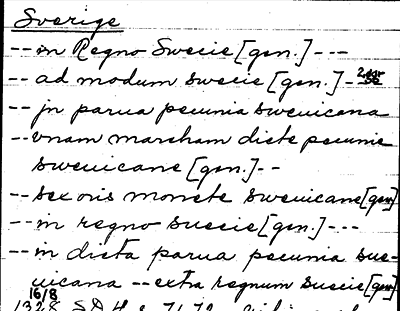 Sverige
-- in Regno Swecie [gen.] ---
-- ad modum swecie [gen.] --
-- jn parua pecunia swenicana
-- vnam marcham dicte pecunie
swenicane [gen.] --
-- sex oris monete swenicane [gen.]
-- in regno suecie [gen.] ---
-- in dicta parua pecunia sue-
uicana -- extra regnum suecie [gen.]
16/8
1328 SD 4 s